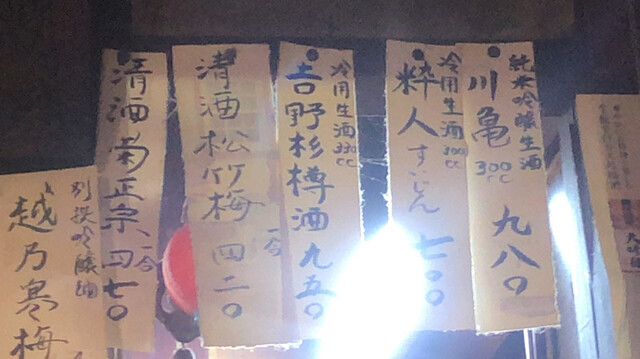 純米吟醸生酒
川亀 300cc 九八〇
冷用生酒 300cc
粋人 すいじん 七〇〇
冷用生酒 330cc
吉野杉樽酒 九五〇
清酒松竹梅 一合 四二〇
清酒菊正宗 一合 四七〇
別撰吟醸
越乃寒梅